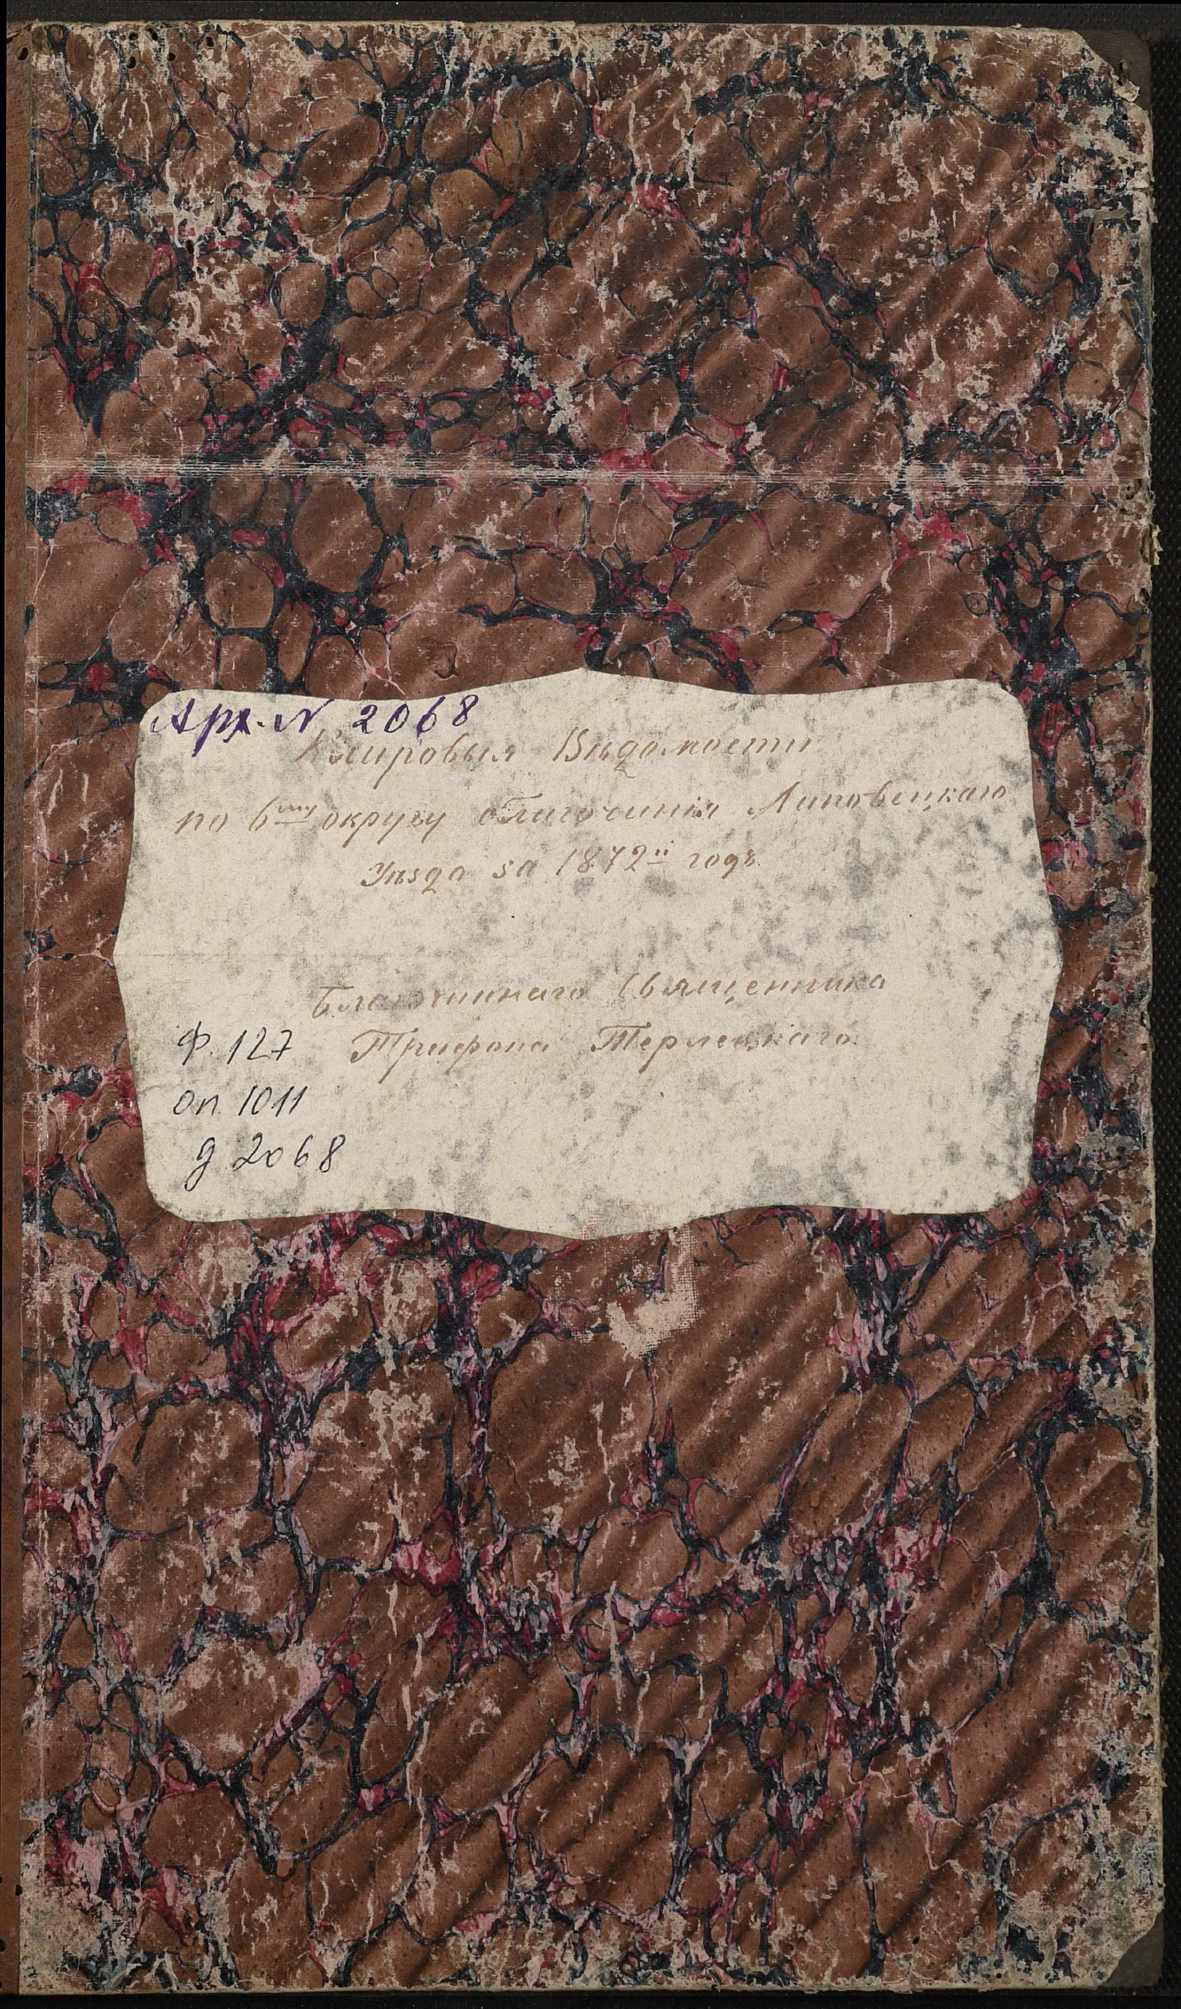 Арх. N 2068
Клировыя Вѣдомости
по 6му округу благочинія Липовецкаго
Уѣзда за 1872й годъ
Благочиннаго Священника
Трифона Терлецкаго.
Ф. 127
оп. 1011
д 2068